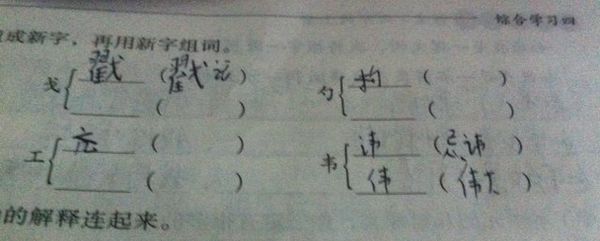 综合学习四
成新字，再用新字组词。
戈 戳 （戳 ） 勺 （ ）
（ ） （ ）
工 （ ） 韦 讳 （忌讳）
（ ） 伟 （伟大）
的解释连起来。